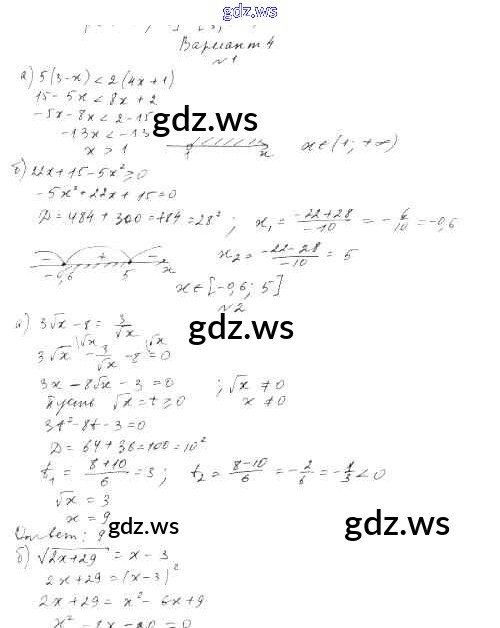 gdz.ws
Вариант 4
№1
а) 5(3-x) < 2(4x+1)
15 - 5x < 8x + 2
-5x - 8x < 2 - 15
gdz.ws
-13x < -13
x > 1
1 x
x ∈ (1; +∞)
б) 22x + 15 - 5x² ≥ 0
-5x² + 22x + 15 = 0
D = 484 + 300 = 784 = 28² ; x₁ = (-22+28)/(-10) = -6/10 = -0,6
x₂ = (-22-28)/(-10) = 5
- + -
-0,6 5 x
x ∈ [-0,6; 5]
№2
а) 3√x - 8 = 3/√x
gdz.ws
3√x - 3/√x - 8 = 0
3x - 8√x - 3 = 0 ; √x ≠ 0
Пусть √x = t ≥ 0 x ≠ 0
3t² - 8t - 3 = 0
D = 64 + 36 = 100 = 10²
t₁ = (8+10)/6 = 3 ; t₂ = (8-10)/6 = -2/6 = -1/3 < 0
√x = 3
x = 9
Ответ: 9
gdz.ws
gdz.ws
б) √(2x+29) = x - 3
2x + 29 = (x-3)²
2x + 29 = x² - 6x + 9
x² - 8x - 20 = 0